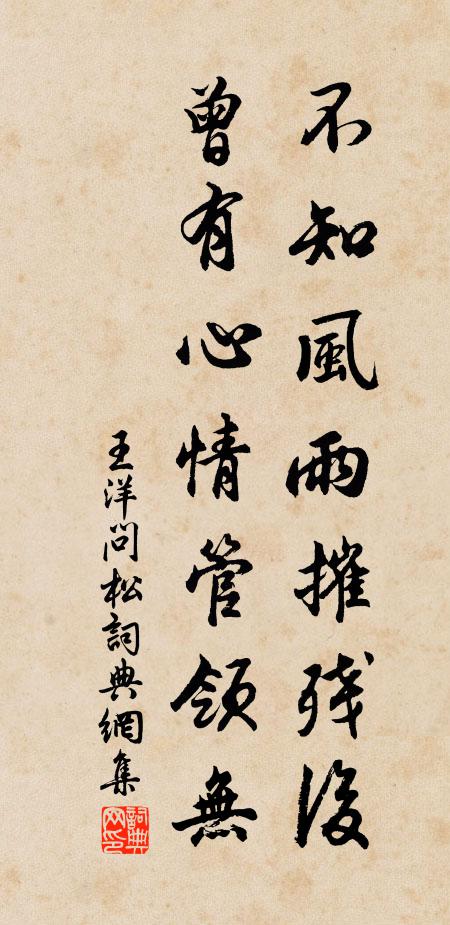 不知風雨摧残後
曾有心情管領無
王洋問松詞典網集
詞典網印